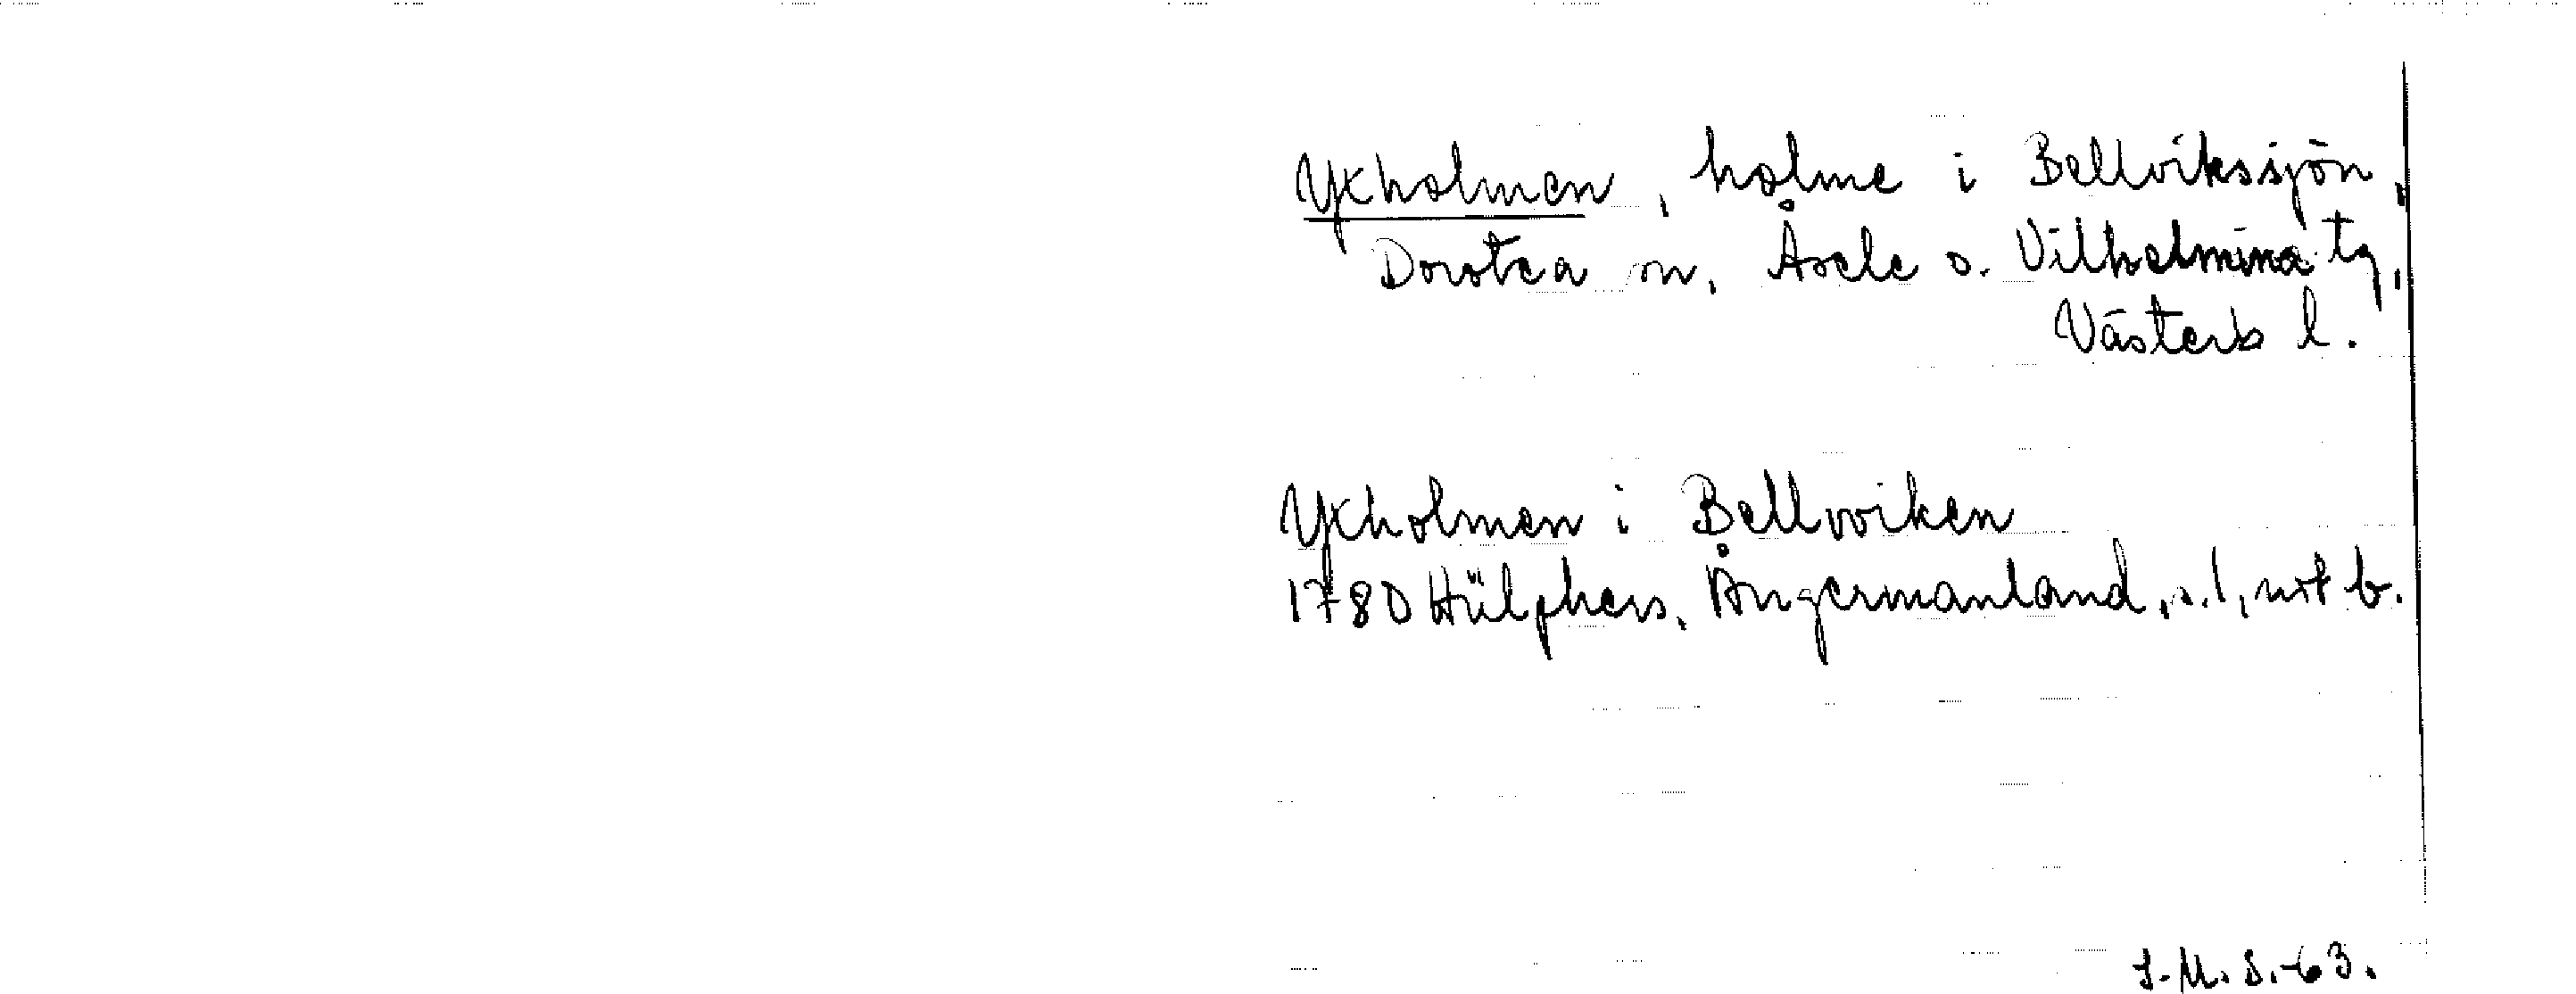 Yxholmen, holme i Bellvikssjön,
Dorotea sn, Åsele o. Vilhelmina tg,
Västerb l.
Yxholmen i Bellvviken
1780 Hülphers, Ångermanland, s. 1, not b.
S.M.S.-63.